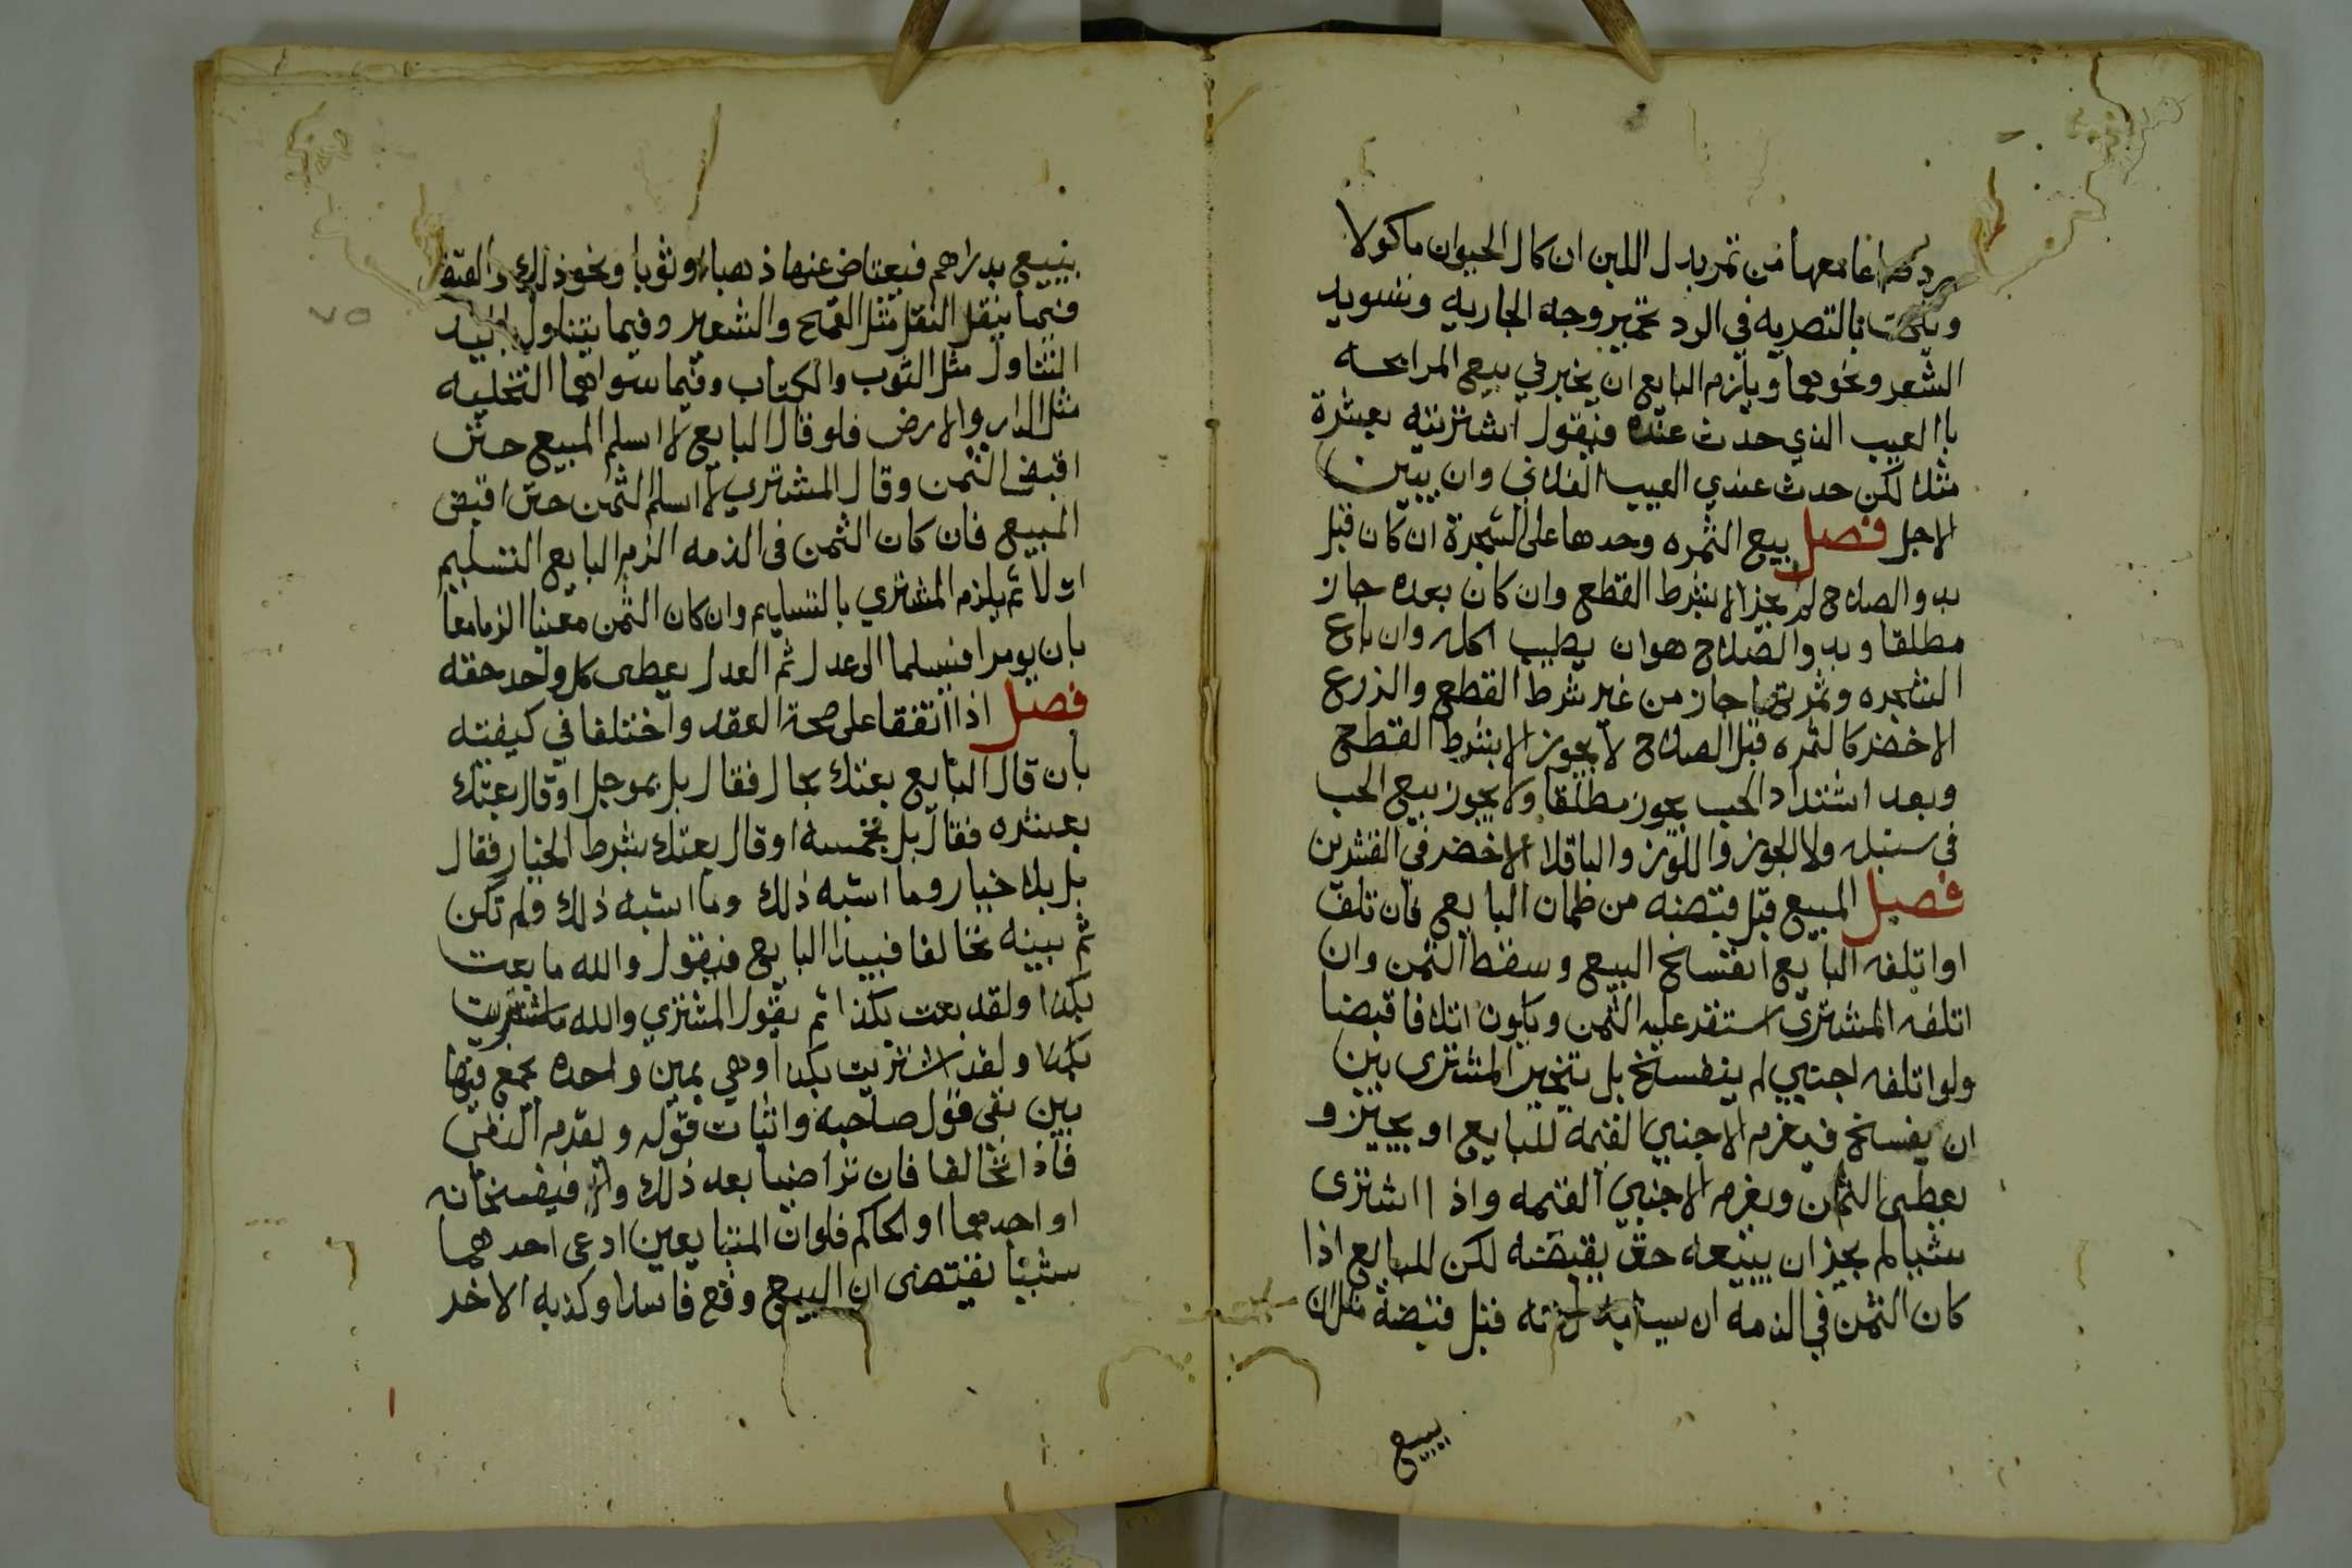 رد صاعا معها من تمر بدل اللبن ان كان الحيوان ماكولا
ويلحق بالتصريه في الرد تحمير وجه الجاريه وتسويد
الشعر ونحوهما ويلزم البايع ان يخبر في بيع المرابحه
باالعيب الذي حدث عنده فيقول اشتريته بعشرة
مثلا لكن حدث عندي العيب الفلاني وان يبين
الاجل فصل بيع الثمره وحدها على الشجرة ان كان قبل
بدو الصلاح لم يجز الا بشرط القطع وان كان بعده جاز
مطلقا وبدو الصلاح هو ان يطيب اكله وان باع
الشجره وثمرتها جاز من غير شرط القطع والزرع
الاخضر كالثمره قبل الصلاح لا يجوز الا بشرط القطع
وبعد اشتداد الحب يجوز مطلقا ولا يجوز بيع الحب
في سنبله ولا الجوز واللوز والباقلا الاخضر في القشرين
فصل المبيع قبل قبضه من ظمان البايع فان تلف
او اتلفه البايع انفسخ البيع وسقط الثمن وان
اتلفه المشتري استقر عليه الثمن ويكون اتلافا قبضا
ولو اتلفه اجنبي لم ينفسخ بل يتخير المشترى بين
ان يفسخ فيغرم الاجنبي القيمه للبايع او يجيز و
يعطى الثمن ويغرم الاجنبي القيمه واذا اشترى
شيا لم يجز ان يبيعه حتى يقبضه لكن للبايع اذا
كان الثمن في الذمه ان يستبدل عنه قبل قبضه مثل ان
يبيع
يبيع بدراهم فيعتاض عنها ذهبا او ثوبا ونحو ذلك والقبض
فيما ينقل النقل مثل القمح والشعير وفيما يتناول باليد
التناول مثل الثوب والكتاب وفيما سواهما التخليه
مثل الدار والارض فلو قال البايع لا اسلم المبيع حتى
اقبض الثمن وقال المشتري لا اسلم الثمن حتى اقبض
المبيع فان كان الثمن في الذمه الزم البايع التسليم
اولا ثم يلزم المشتري بالتسليم وان كان الثمن معينا الزما معا
بان يومرا فيسلما الى عدل ثم العدل يعطى كل واحد حقه
فصل اذا اتفقا على صحة العقد واختلفا في كيفيته
بان قال البايع بعتك بحال فقال بل بموجل او قال بعتك
بعشره فقال بل بخمسة او قال بعتك بشرط الخيار فقال
بل بلا خيار وما اشبه ذلك وما اشبه ذلك ولم تكن
ثم بينه تحالفا فيبدا البايع فيقول والله ما بعت
بكذا ولقد بعت بكذا ثم يقول المشتري والله ما اشتريت
بكذا ولقد اشتريت بكذا وهي يمين واحده يجمع فيها
بين نفي قول صاحبه واثبات قوله ويقدم النفي
فاذا تحالفا فان تراضيا بعد ذلك والا فيفسخانه
او احدهما او الحاكم فلو ان المتبايعين ادعى احدهما
شيئا يقتضى ان البيع وقع فاسدا وكذبه الاخر
٧٥